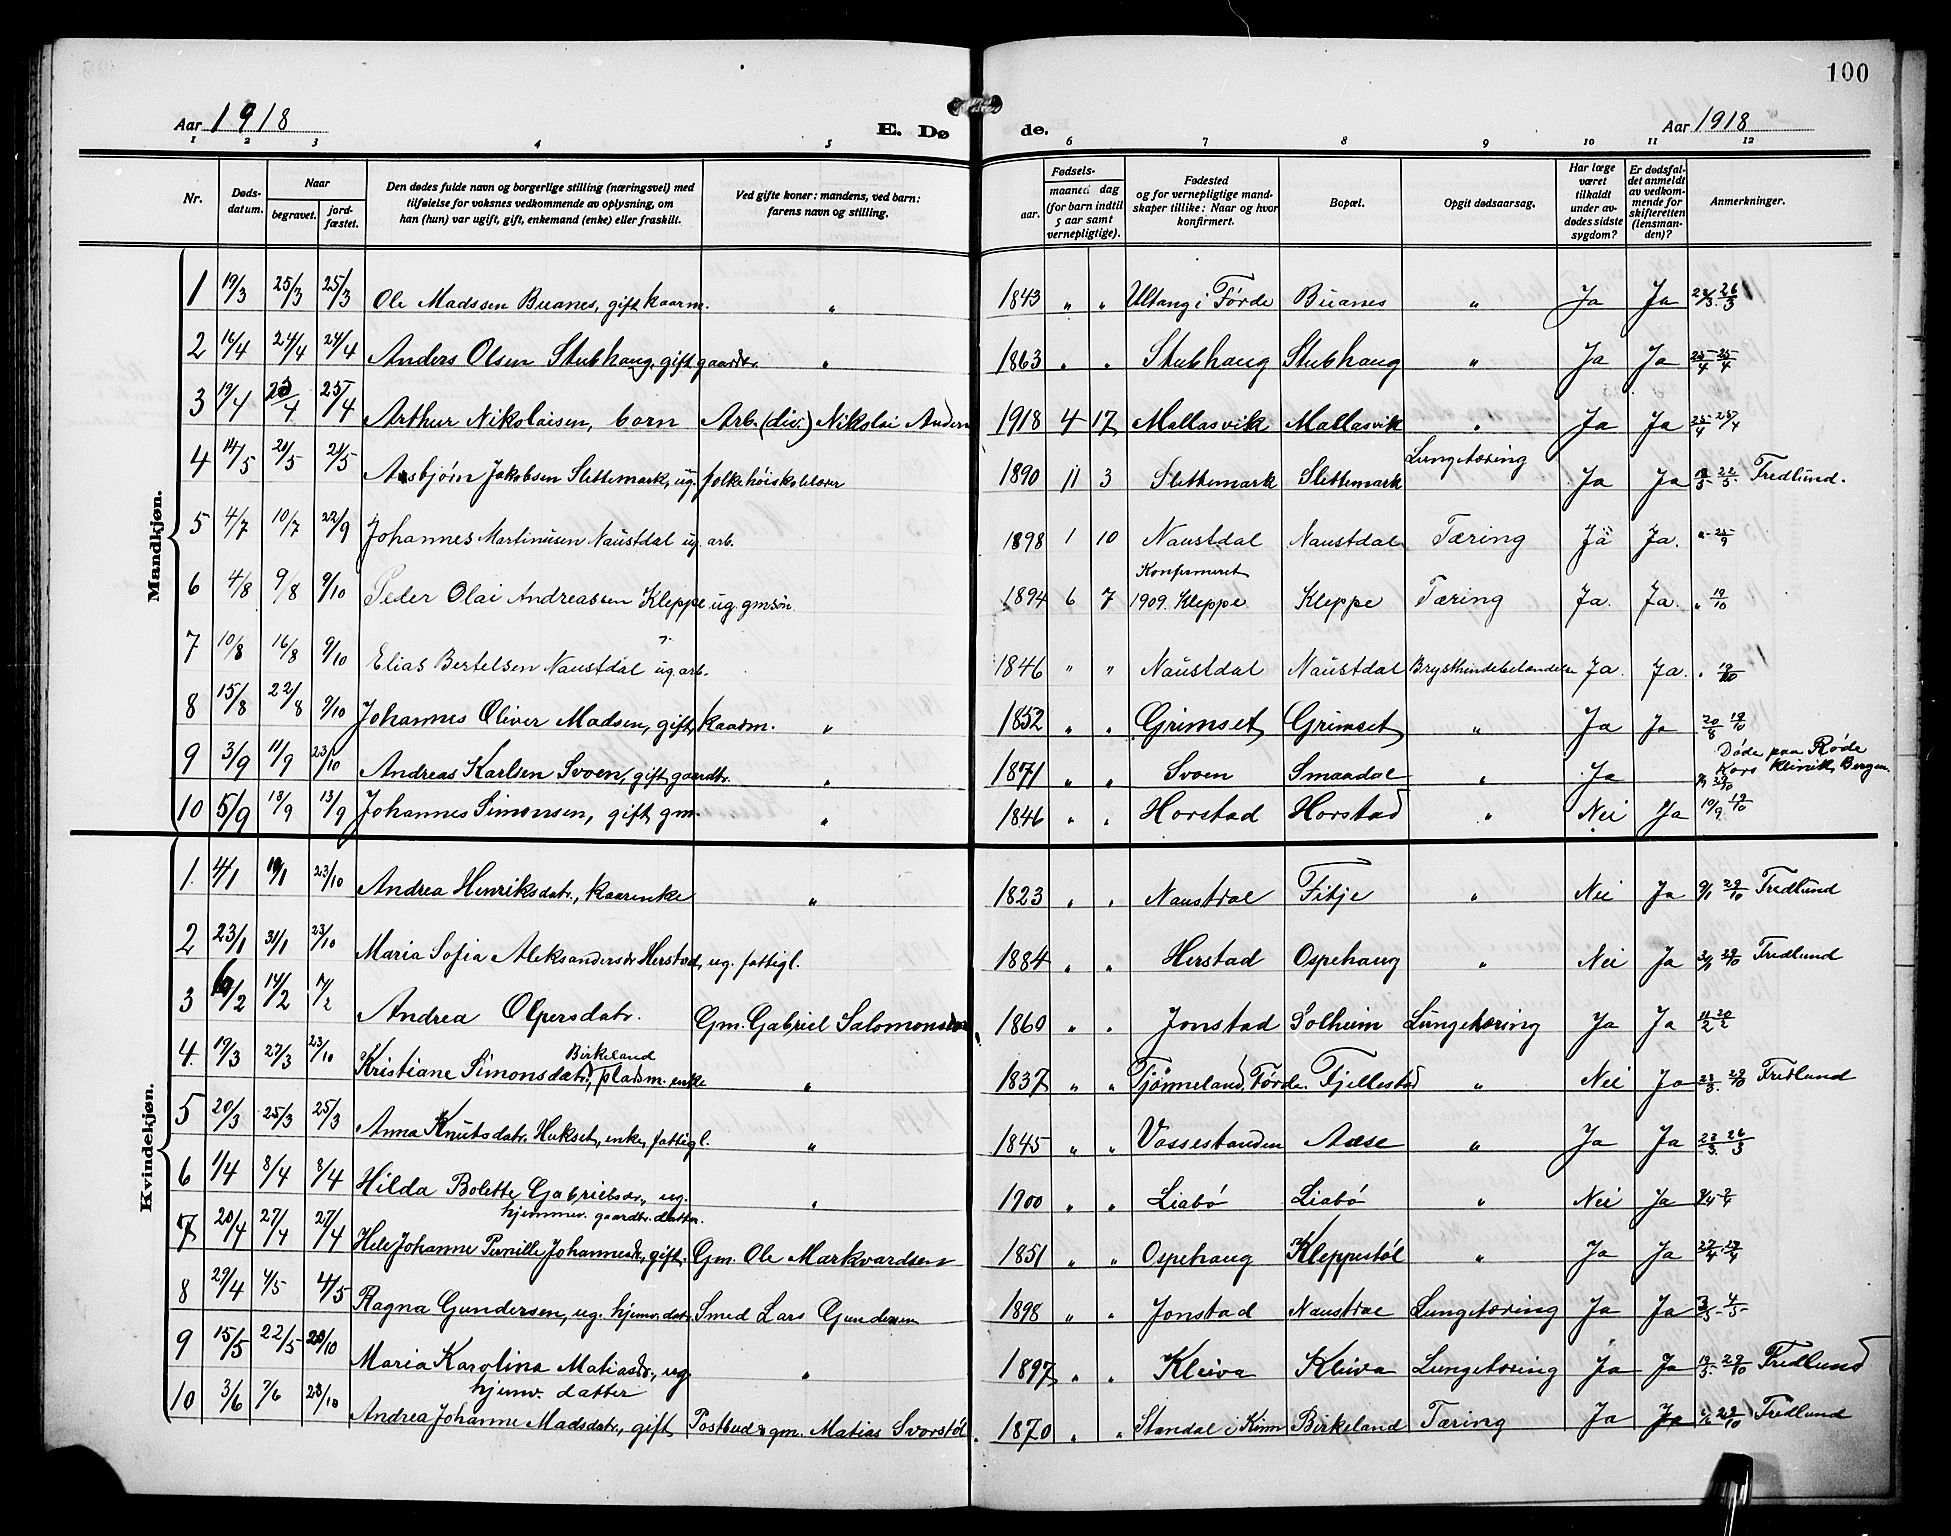 100
Aar 1918
E. Dø
de.
Aar 1918
1 2 3 4 5 6 7 8 9 10 11 12
Nr.
Døds-
datum.
Naar
begravet.
jord-
fæstet.
Den dødes fulde navn og borgerlige stilling (næringsvei) med
tilføielse for voksnes vedkommende av oplysning, om
han (hun) var ugift, gift, enkemand (enke) eller fraskilt.
Ved gifte koner: mandens, ved barn:
farens navn og stilling.
Fødsels-
aar.
maaned dag
(for barn indtil
5 aar samt
vernepligtige).
Fødested
og for vernepligtige mand-
skaper tillike: Naar og hvor
konfirmert.
Bopæl.
Opgit dødsaarsag.
Har læge
været
tilkaldt
under av-
dødes sidste
sygdom?
Er dødsfal-
det anmeldt
av vedkom-
mende for
skifteretten
(lensman-
den)?
Anmerkninger.
Mandkjøn.
1 19/3 25/3 25/3 Ole Madssen Buanes, gift kaarm. " 1843 " " Ultang i Førde Buanes " Ja Ja 26/3
2 16/4 24/4 24/4 Anders Olsen Stubhaug, gift gaardbr. " 1863 " " Stubhaug Stubhaug " Ja Ja 25/4 25/4
3 19/4 25/4 25/4 Arthur Nikolaisen, barn Arb. (div.) Nikolai Andersen 1918 4 17 Mallasvik Mallasvik " Ja Ja 25/4 25/4
4 14/5 21/5 21/5 Asbjørn Jakobsen Slettemark, ug. folkehøiskolelærer 1890 11 3 Slettemark Slettemark Lungetæring Ja Ja 22/5 Fredlund.
5 4/7 10/7 22/9 Johannes Martinusen Naustdal ug. arb. 1898 1 10 Naustdal Naustdal Tæring Ja Ja. " 25/9
6 4/8 9/8 9/10 Peder Olai Andreassen Kleppe ug. gmsøn. 1894 6 7 Konfirmeret 1909. Kleppe Kleppe Tæring Ja. Ja. " 19/10
7 10/8 16/8 9/10 Elias Bertelsen Naustdal ug. arb. 1846 " " Naustdal Naustdal Brysthindebetændelse Ja. Ja. " 19/10
8 15/8 22/8 9/10 Johannes Oliver Madsen, gift, kaarm. " 1852 " " Grimset Grimset " Ja Ja 20/8 19/10
9 3/9 11/9 23/10 Andreas Karlsen Svoen, gift gaardbr. " 1871 " " Svoen Smaadal " Ja Døde paa Røde Kors klinik, Bergen. 29/10
10 5/9 13/9 13/9 Johannes Simonsen, gift, gm. " 1846 " " Horstad Horstad " Nei Ja 10/9 19/10
Kvindekjøn.
1. 4/1 23/10 Andrea Henriksdatr., kaarenke " 1823 " " Naustdal Fitje " Nei Ja 9/1 29/10 Fredlund
2 23/1 31/1 23/10 Maria Sofia Aleksandersdr Herstad, ug. fattigl. 1884 " " Herstad Ospehaug " Nei Ja 29/10 Fredlund
3 14/2 Andrea Olpersdatr. Gm. Gabriel Salomonsen 1860 " " Jonstad Solheim Lungetæring Ja Ja 20/2
4. 19/3 27/3 23/10 Kristiane Simonsdatr. Birkeland pladsm. enke " 1837 " " Tjønneland, Førde Fjellestad " Nei Ja 29/10 Fredlund
5 20/3 25/3 25/3 Anna Knutsdatr. Hukset, enke, fattigl. " 1845 " " Vossestanden Aase " Ja Ja 26/3
6 1/4 8/4 8/4 Hilda Bolette Gabrielsdr., ug. hjemmev. gaardbr. datter. " 1900 " " Liabø Liabø " Nei Ja
7 20/4 27/4 27/4 Hele Johanne Pernille Johannesdr., gift. Gm. Ole Markvardsen 1851 " " Ospehaug Kleppestøl " Ja Ja 27/4 27/4
8 29/4 4/5 4/5 Ragna Gundersen, ug. hjemv. datr. Smed Lars Gundersen 1898 " " Jonstad Naustdal Lungetæring Ja Ja 3/5 4/5
9 15/5 22/5 23/10 Maria Karolina Matiasdr., ug. hjemv. datter " 1897 " " Kleiva Kleiva Lungetæring Ja Ja 19/5 29/10 Fredlund
10 3/6 7/6 23/10 Andrea Johanne Madsdatr., gift Postbud & gm. Matias Svorstøl. 1870 " " Standal i Kinn Birkeland Tæring Ja Ja 29/10 Fredlund